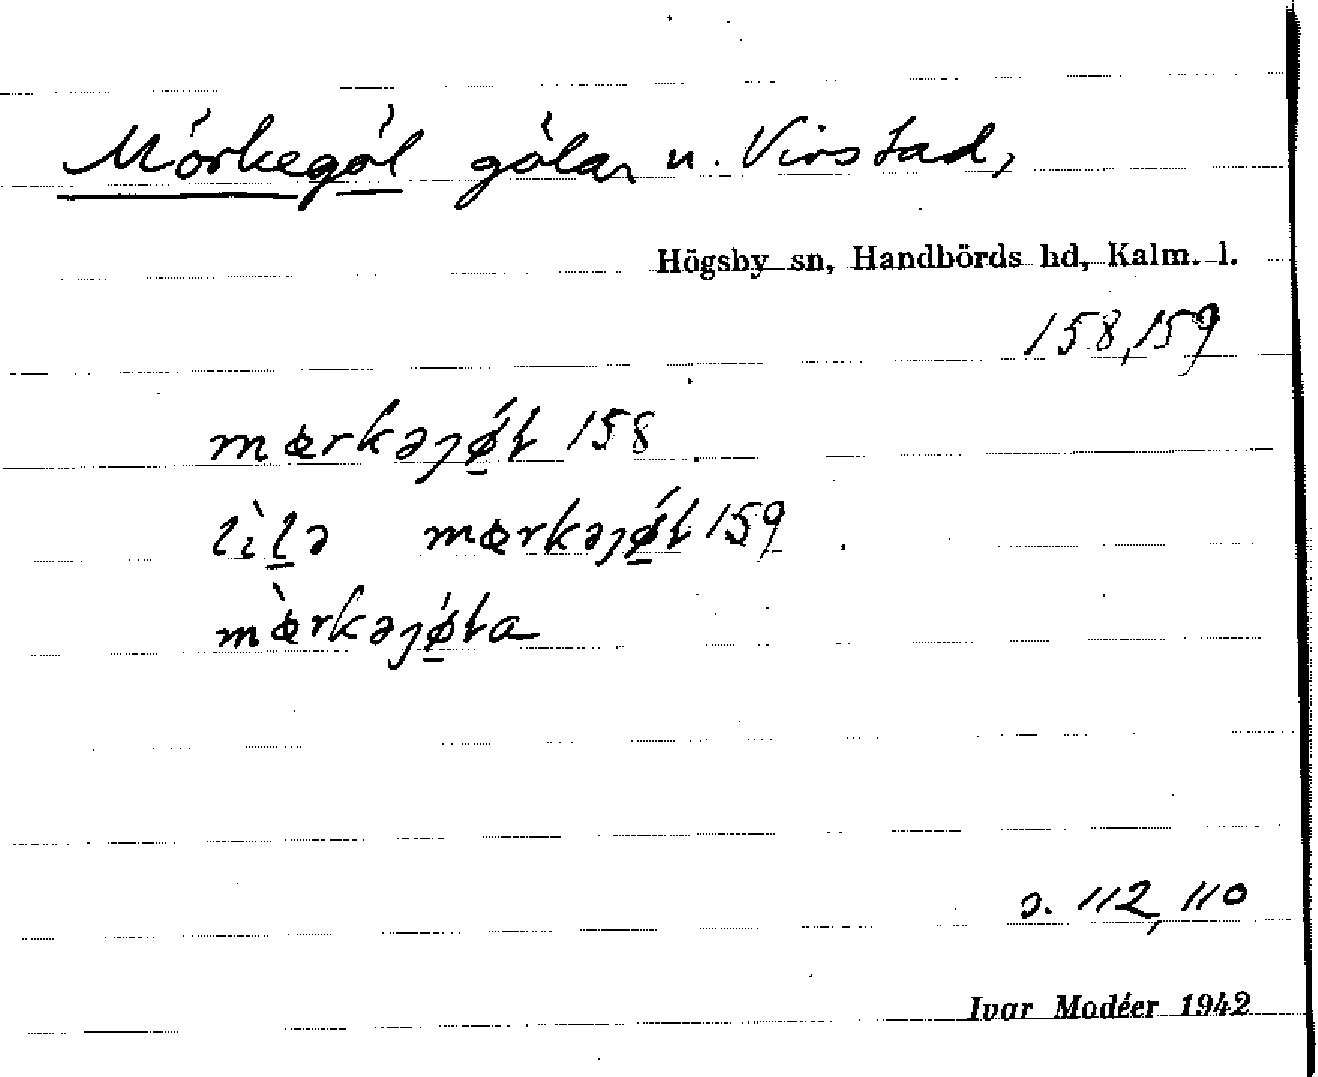 Mörkegöl gölar u. Virstad,
Högsby sn, Handbörds hd, Kalm. l.
158,159
mœrkəɟǿ̠ɫ 158
lìl̠ə mœrkəɟǿ̠ɫ 159
mœ̀rkəɟǿ̠ɫa
s. 112, 110
Ivar Modéer 1942